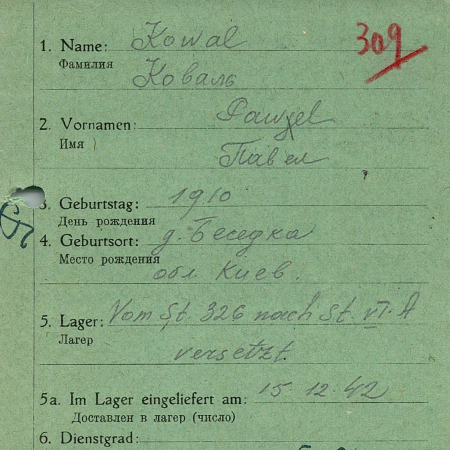 309
1. Name: Kowal
Фамилия
Коваль
2. Vornamen: Pawel
Имя
Павел
3. Geburtstag: 1910
День рождения
4. Geburtsort: д. Беседка
Место рождения
обл Киев.
5. Lager: Vom St. 326 nach St. VI-A
Лагер
versetzt.
5a. Im Lager eingeliefert am: 15.12.42
Доставлен в лагер (число)
6. Dienstgrad: